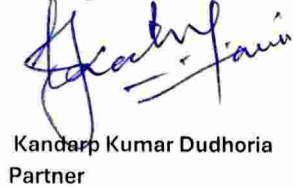 Kandarp Kumar Dudhoria
Partner